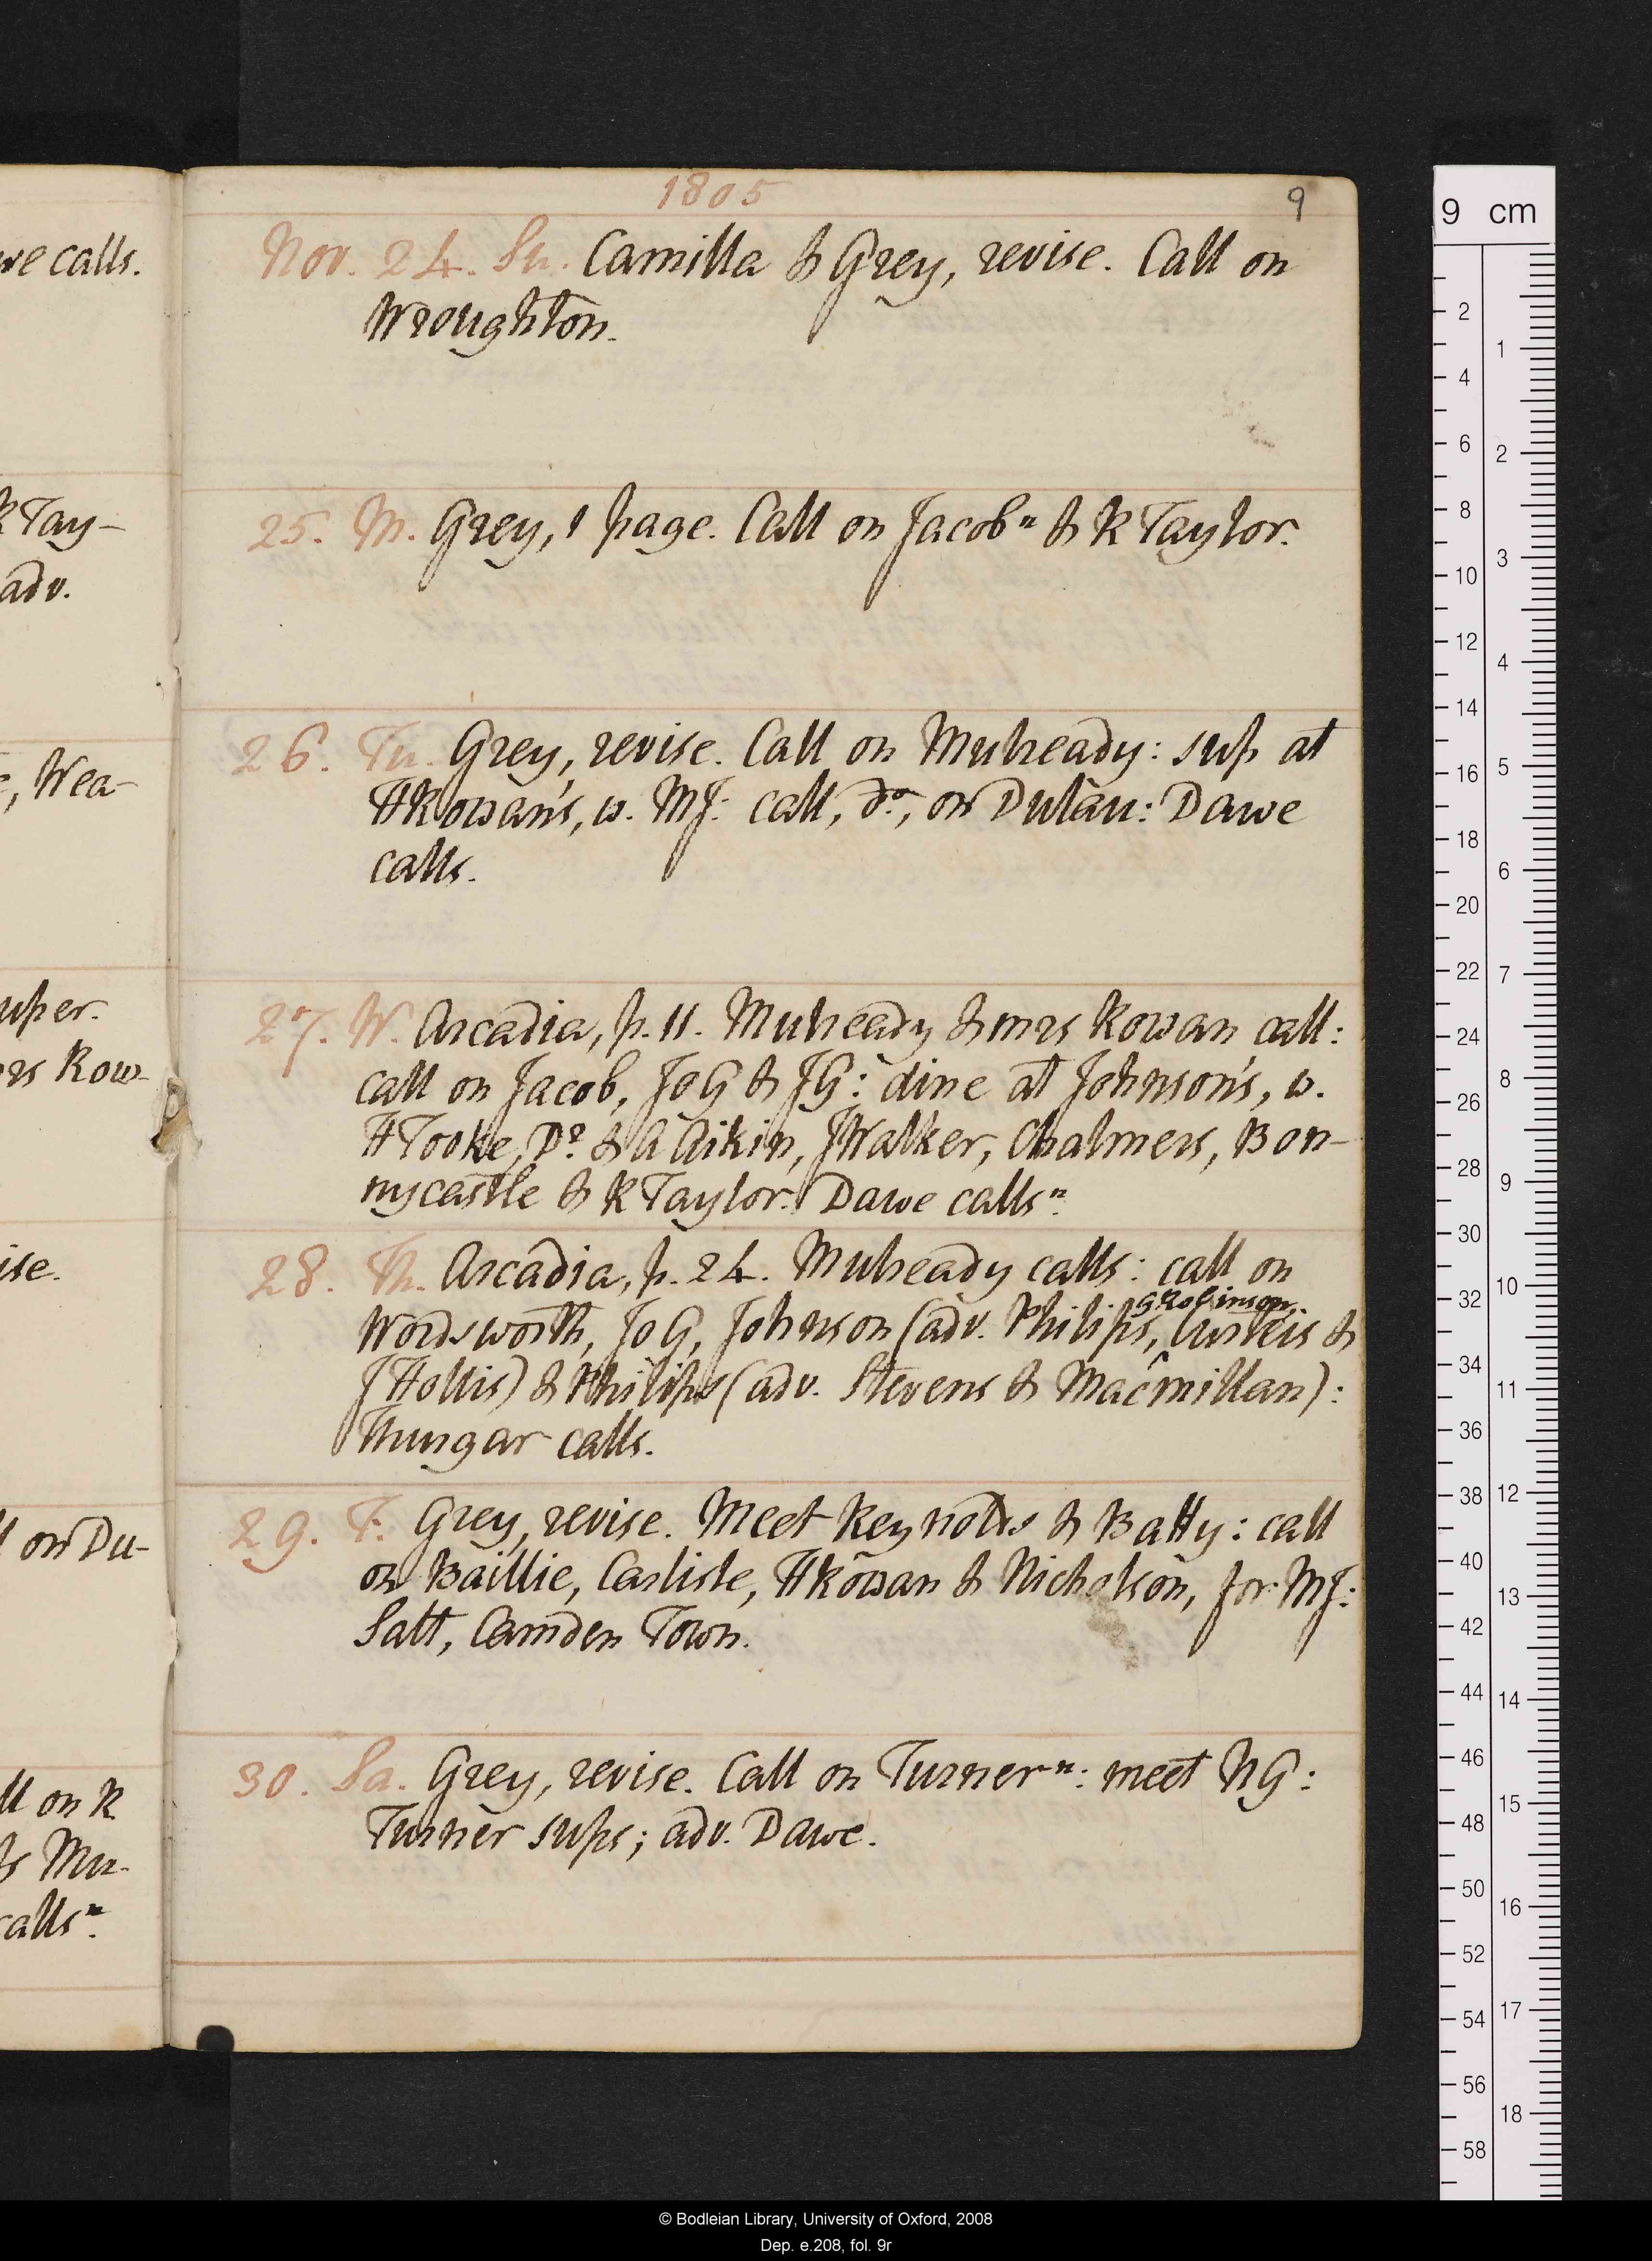 1805
9
Nov. 24. Su. Camilla & Grey, revise. Call on
Wroughton.
25. M. Grey, 1 page. Call on Jacobⁿ & R Taylor.
26. Tu. Grey, revise. Call on Mulready: sup at
HRowan's, w. MJ: call, dº, on Dulau: Dawe
calls.
27. W. Arcadia, p. 11. Mulready & mrs Rowan call:
call on Jacob, JoG & JG: dine at Johnson's, w.
HTooke, Dr & A Aikin, JWalker, Chalmers, Bon-
nycastle & R Taylor. Dawe callsⁿ.
28. Th. Arcadia, p. 24. Mulready calls: call on
Wordsworth, JoG, Johnson (adv. Philips, ^GRobinson, Curteis &
J Hollis) & Philips (adv. Stevens & Macmillan):
Thurgar calls.
29. F. Grey, revise. Meet Reynolds & Batty: call
on Baillie, Carlisle, HRowan & Nicholson, for MJ:
Salt, Camden Town.
30. Sa. Grey, revise. Call on Turnerⁿ: meet NG:
Turner sups; adv. Dawe.
we calls.
R Tay-
adv.
, Wea-
uper.
rs Row-
ise.
on Du-
ll on R
& Mu-
callsⁿ.
9 cm
2
4
6
8
10
12
14
16
18
20
22
24
26
28
30
32
34
36
38
40
42
44
46
48
50
52
54
56
58
1
2
3
4
5
6
7
8
9
10
11
12
13
14
15
16
17
18
© Bodleian Library, University of Oxford, 2008
Dep. e.208, fol. 9r